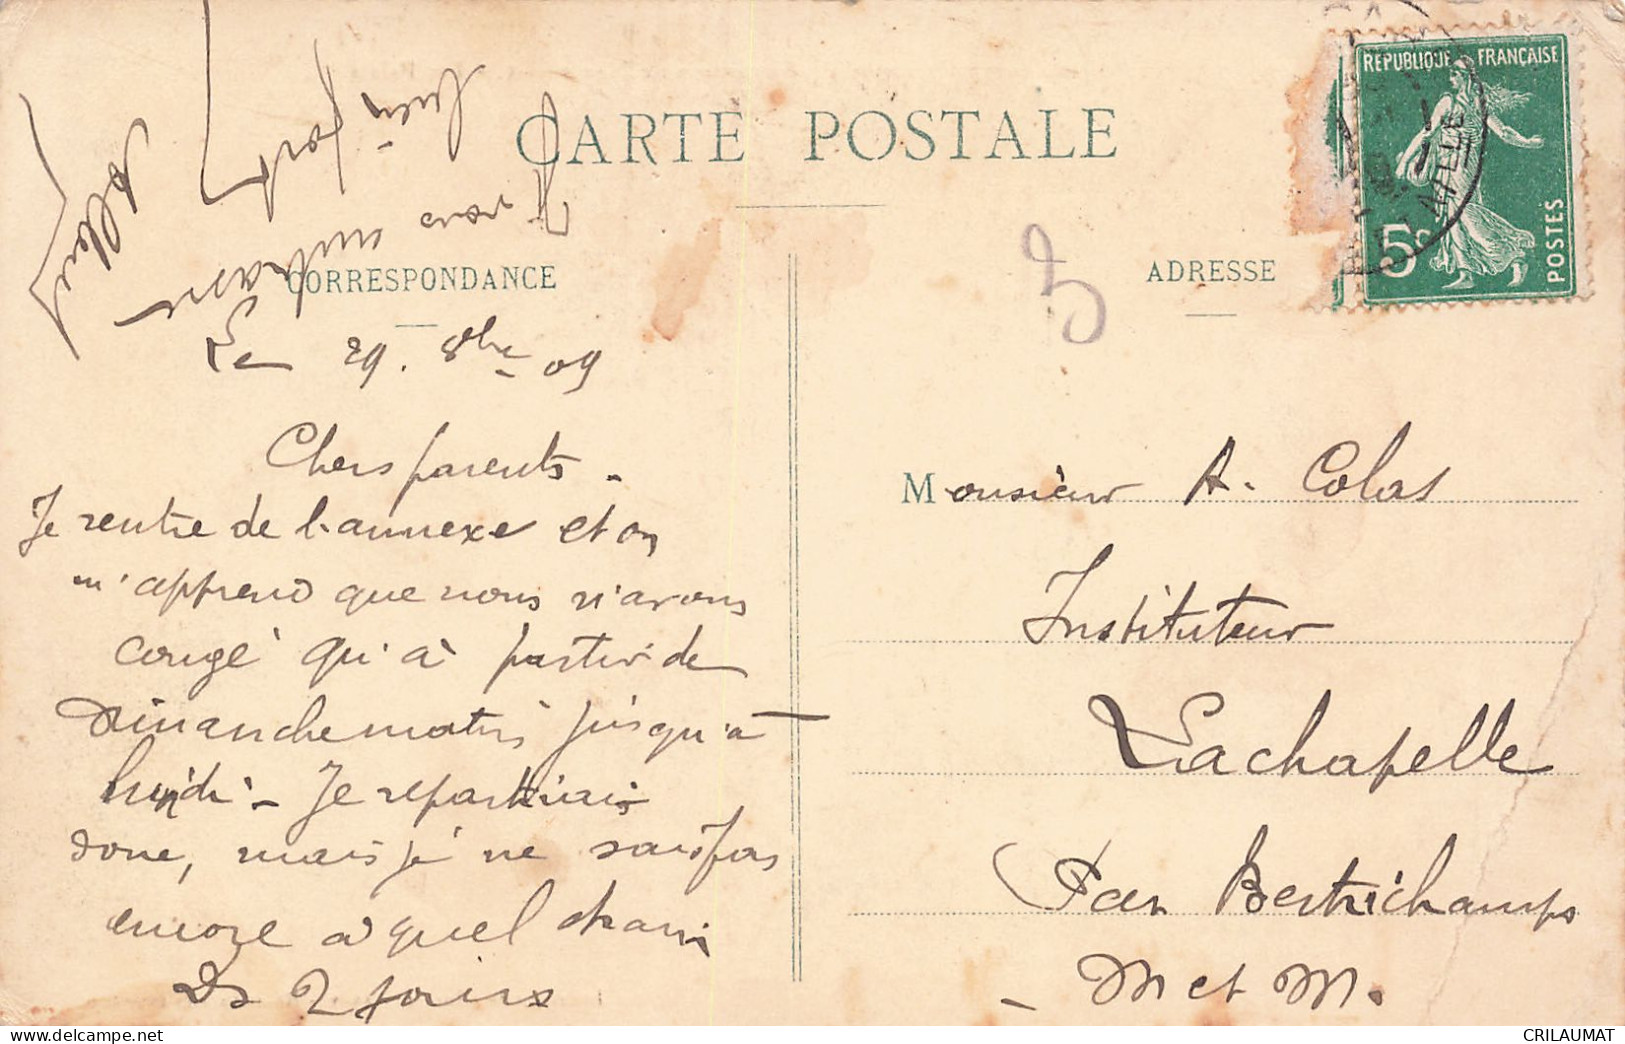 CARTE POSTALE
CORRESPONDANCE
ADRESSE
REPUBLIQUE FRANÇAISE
5c
POSTES
Le 29. 8bre 09
Chers parents.
Je rentre de l'annexe et on
m'apprend que nous n'avons
congé qu'à partir de
Dimanche matin jusqu'à
lundi. Je repartirais
donc, mais je ne sais pas
encore à quel train
Ds 2 jours
bien fort
Je vous embrasse
Monsieur A. Colas
Instituteur
Lachapelle
Par Bertrichamps
- M et M.
CRILAUMAT